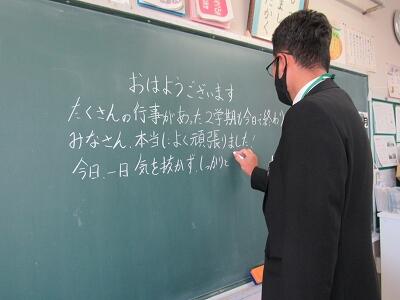 おはようございます
たくさんの行事があった2学期も今日で終わり
みなさん、本当によく頑張りました!
今日、一日 気を抜かず、しっかりと